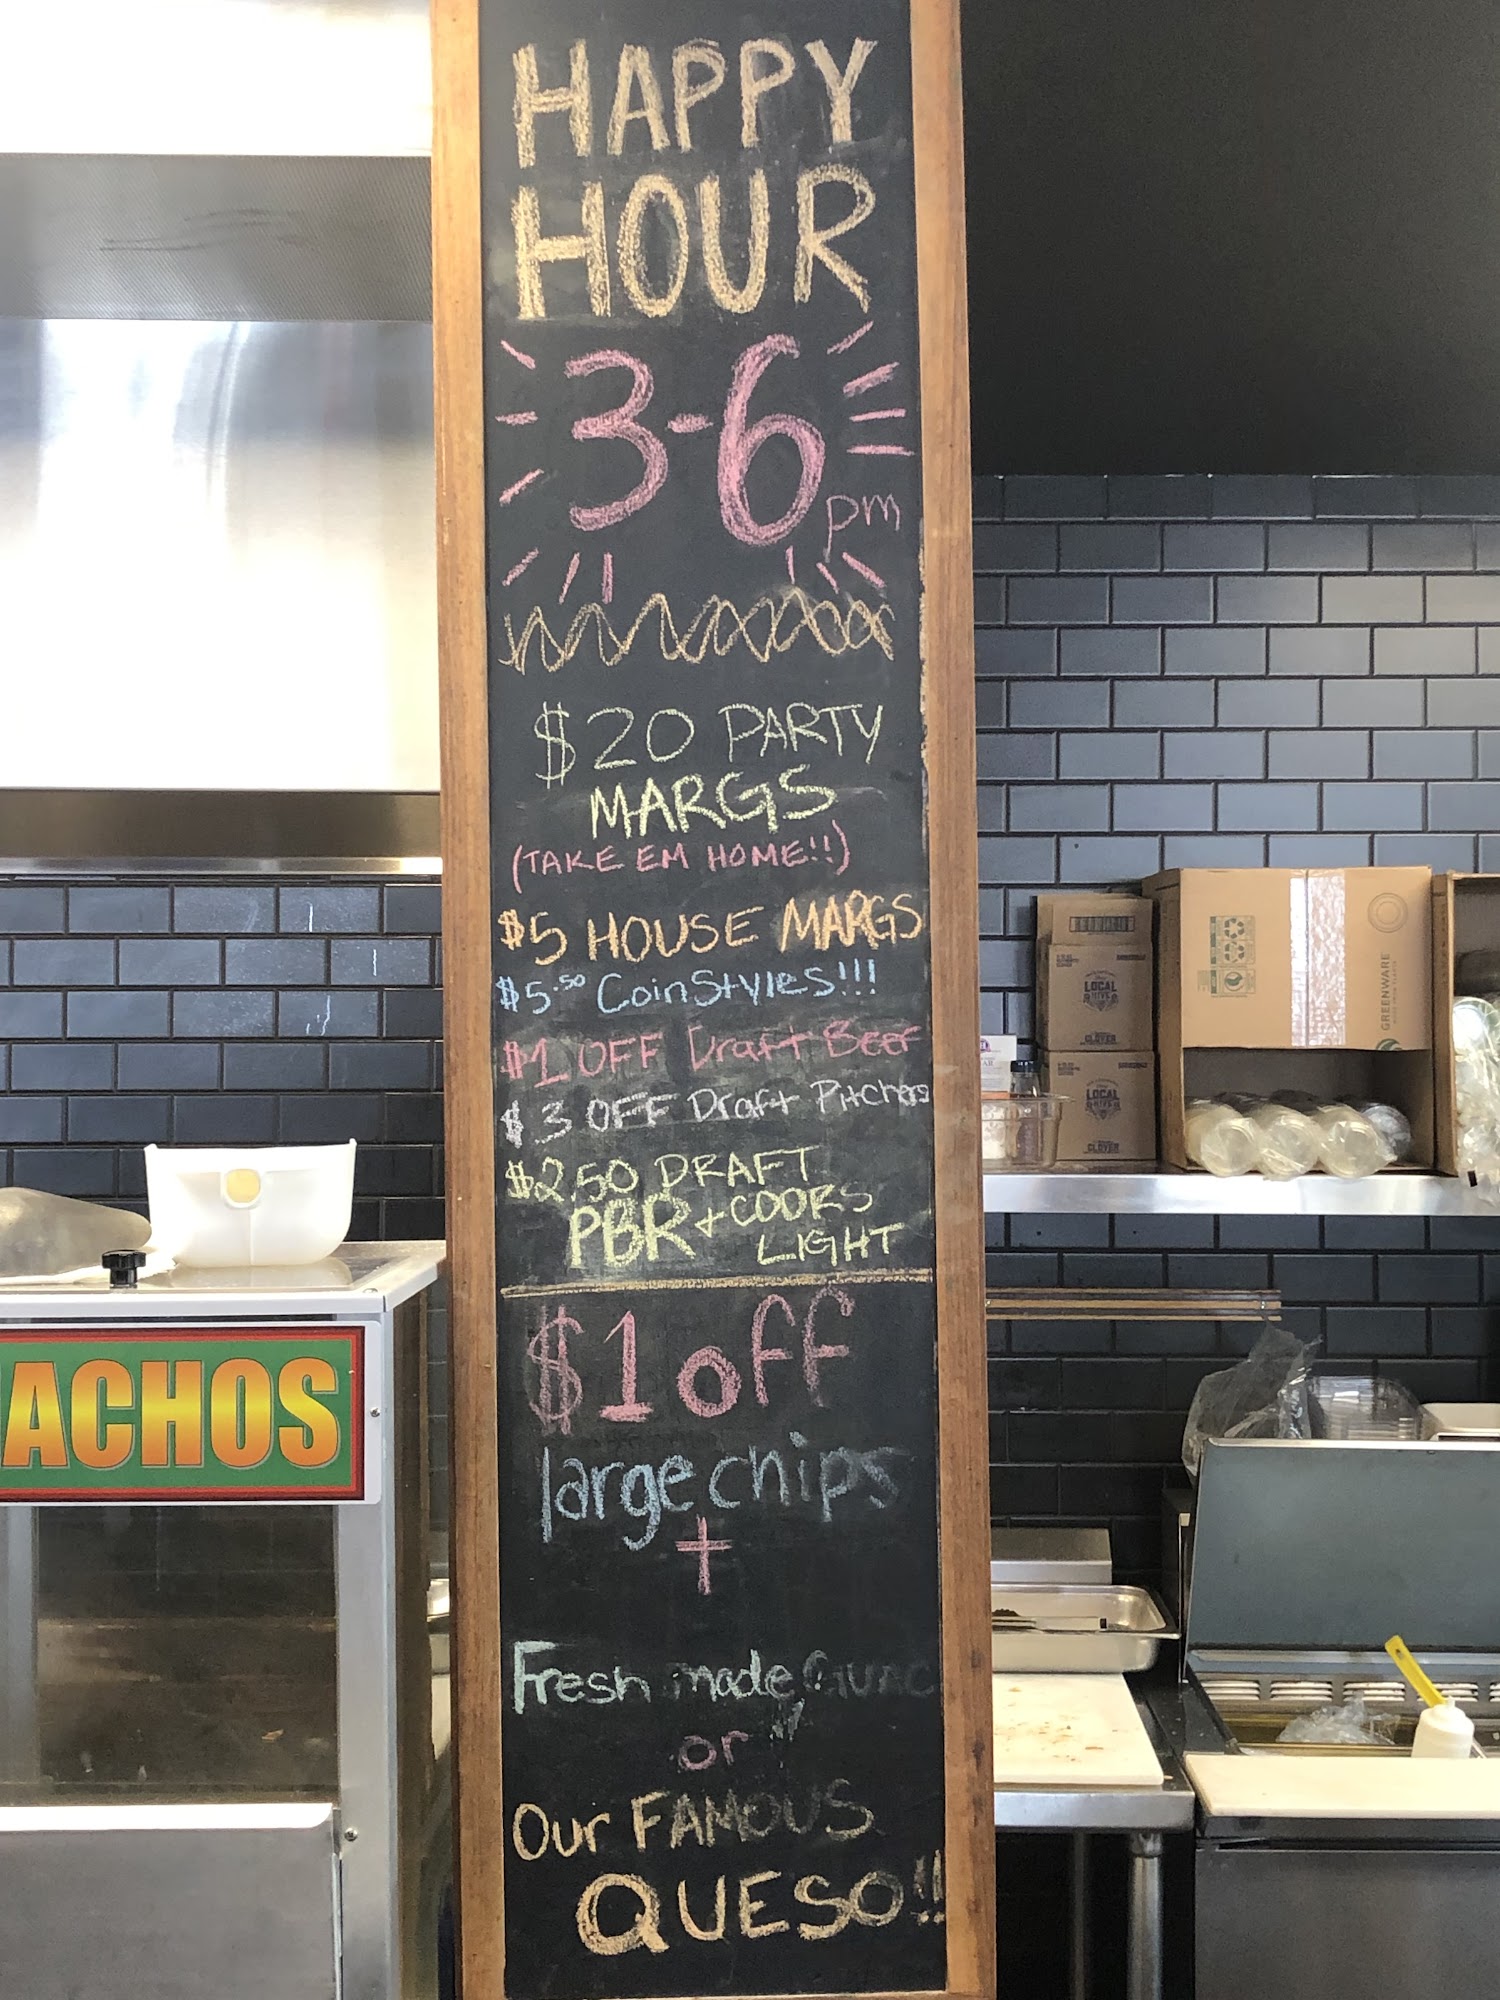 HAPPY
HOUR
3-6
pm
$20 PARTY
MARGS
(TAKE EM HOME!!)
$5 HOUSE MARGS
$5.50 CoinStyles!!!
$1 OFF Draft Beer
$3 OFF Draft Pitchers
$2.50 DRAFT
PBR + COORS
LIGHT
$1 off
large chips
+
Fresh made GUAC
or
Our FAMOUS
QUESO!!
ACHOS
LOCAL
HIVE
CLOVER
LOCAL
HIVE
CLOVER
GREENWARE